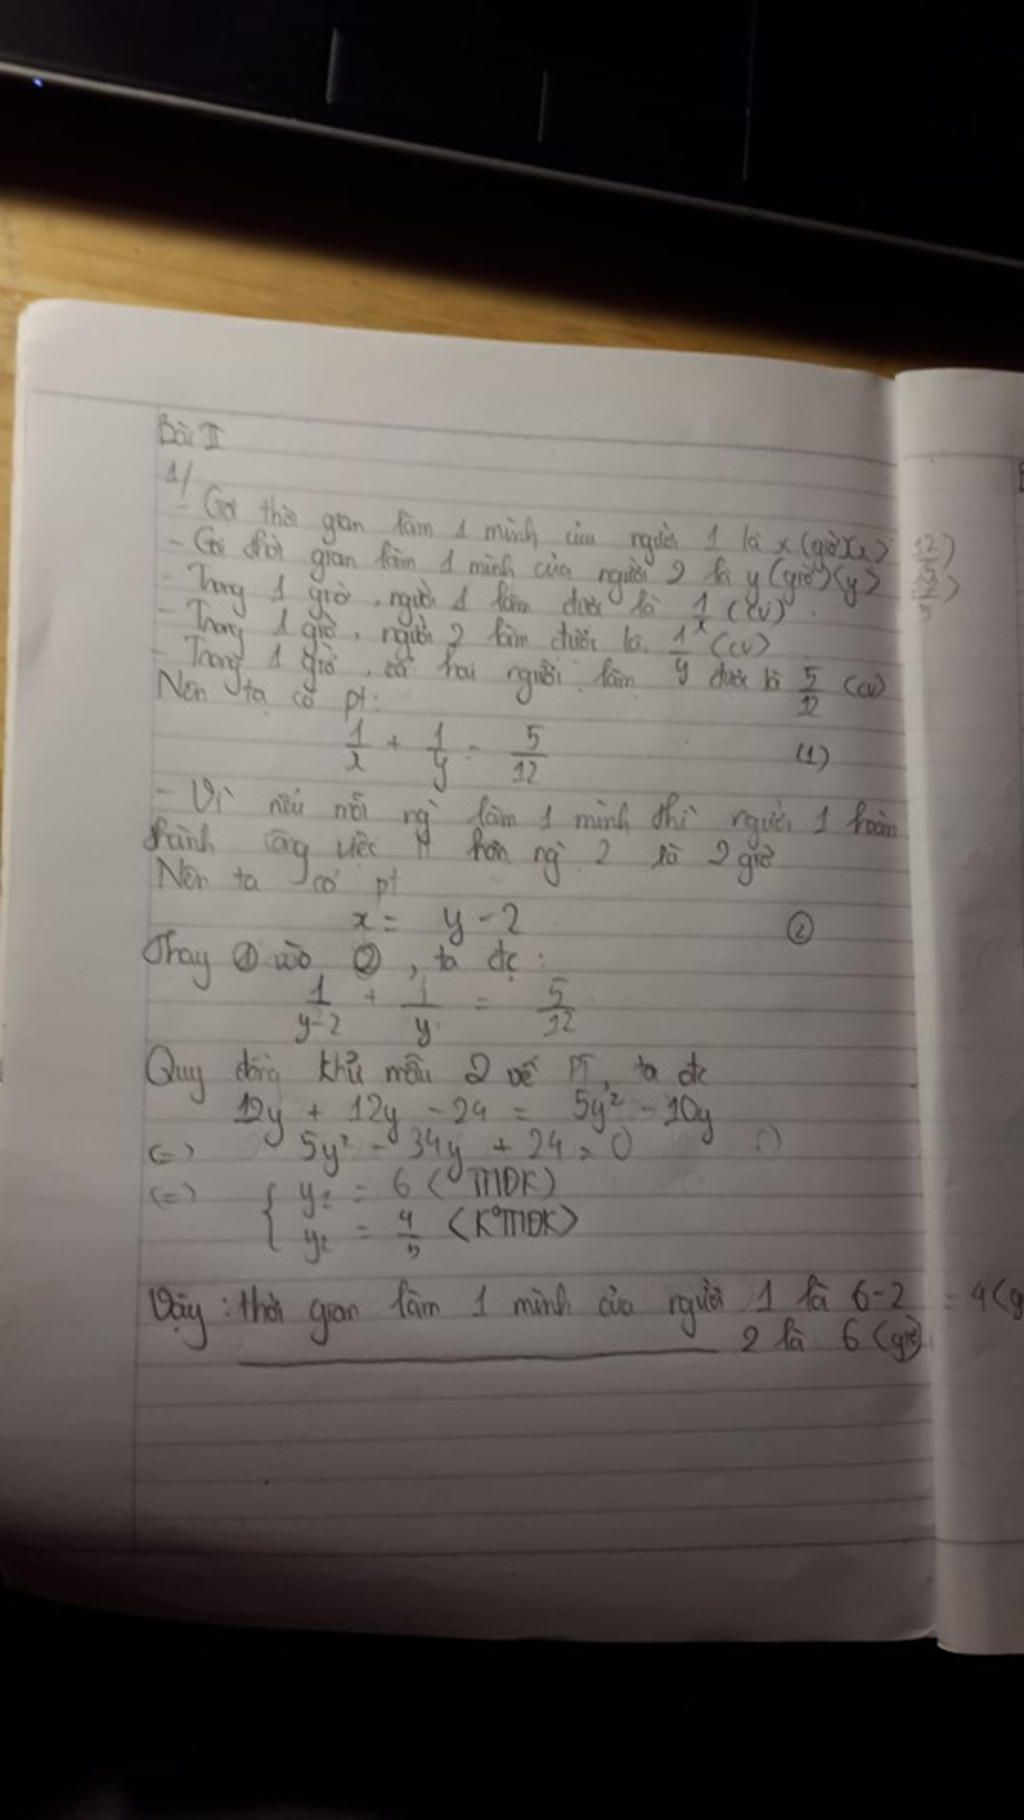 Bài II
1/
- Gọi thời gian làm 1 mình của người 1 là x (giờ)(x > 12/5)
- Gọi thời gian làm 1 mình của người 2 là y (giờ)(y > 12/5)
- Trong 1 giờ, người 1 làm được là 1/x (cv)
- Trong 1 giờ, người 2 làm được là 1/y (cv)
- Trong 1 giờ, cả hai người làm được là 5/12 (cv)
Nên ta có pt:
1/x + 1/y = 5/12 (1)
- Vì nếu mỗi ng làm 1 mình thì người 1 hoàn
thành công việc ít hơn ng 2 là 2 giờ
Nên ta có pt
x = y - 2 (2)
Thay (1) vào (2), ta đc:
1/y-2 + 1/y = 5/12
Quy đồng khử mẫu 2 vế PT, ta đc
12y + 12y - 24 = 5y² - 10y
<=> 5y² - 34y + 24 = 0
<=> { y₁ = 6 (TMĐK)
y₂ = 4/5 (K°TMĐK)
Vậy: thời gian làm 1 mình của người 1 là 6-2 = 4 (g
2 là 6 (giờ)